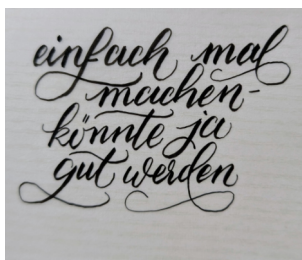 einfach mal
machen-
könnte ja
gut werden